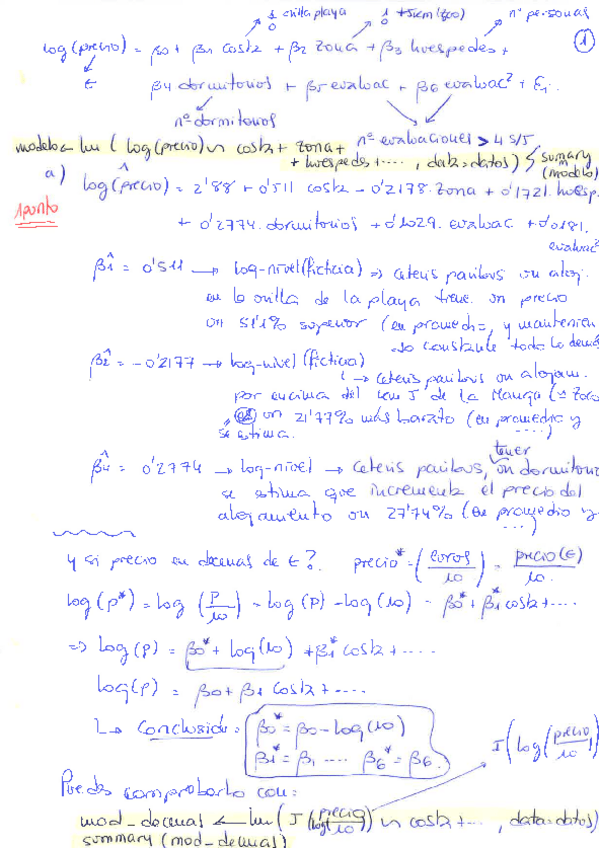 1 orilla playa 1 +5km (zoco) nº personas
0 0
log(precio) = β0 + β1 costa + β2 zona + β3 huespedes + 1
€ β4 dormitorios + β5 evaluac + β6 evaluac² + Ei.
nº dormitorios
nº evaluaciones > 4's/5
modelo <- lm (log(precio) ~ costa + zona +
+ huespedes + ...., data=datos) summary (modelo)
a) log(precio)^ = 2'88 + 0'511 costa - 0'2178. zona + 0'1721. huesp.
1 punto
+ 0'2774. dormitorios + 0'1029. evaluac + 0'0181.
evaluac²
β̂1 = 0'511 → log-nivel (ficticia) => ceteris paribus un aloj.
en la orilla de la playa tiene un precio
un 51'1% superior (en promedio, y mantenien
do constante todo lo demás
β̂2 = -0'2177 → log-nivel (ficticia)
→ ceteris paribus un alojam.
por encima del km 5 de la Manga (= Zoco
un 21'77% más barato (en promedio y
se estima. ....)
tener
β̂4 = 0'2774 → log-nivel → ceteris paribus, un dormitorio
se estima que incrementa el precio del
alojamiento un 27'74% (en promedio y
....)
Y si precio en decenas de €? precio* = (euros/10) = precio(€)/10.
log(p*) = log (P/10) = log(p) - log(10) = β0* + β1* costa + ....
=> log(p) = β0* + log(10) + β1* costa + ....
log(p) = β0 + β1 costa + ....
↳ Conclusión: β0* = β0 - log(10)
β1* = β1 .... β6* = β6.
I(log(precio/10))
Puedes comprobarlo con:
mod_decenas <- lm( I(log(precio/10)) ~ costa + ...., data=datos)
summary (mod_decenas)